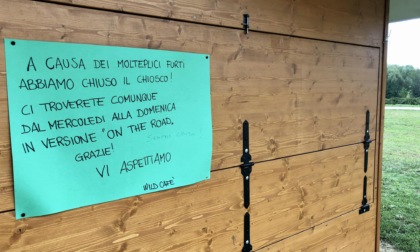 A CAUSA DEI MOLTEPLICI FURTI
ABBIAMO CHIUSO IL CHIOSCO!
CI TROVERETE COMUNQUE
DAL MERCOLEDI ALLA DOMENICA
IN VERSIONE "ON THE ROAD,
GRAZIE!
VI ASPETTIAMO
WILD CAFÈ